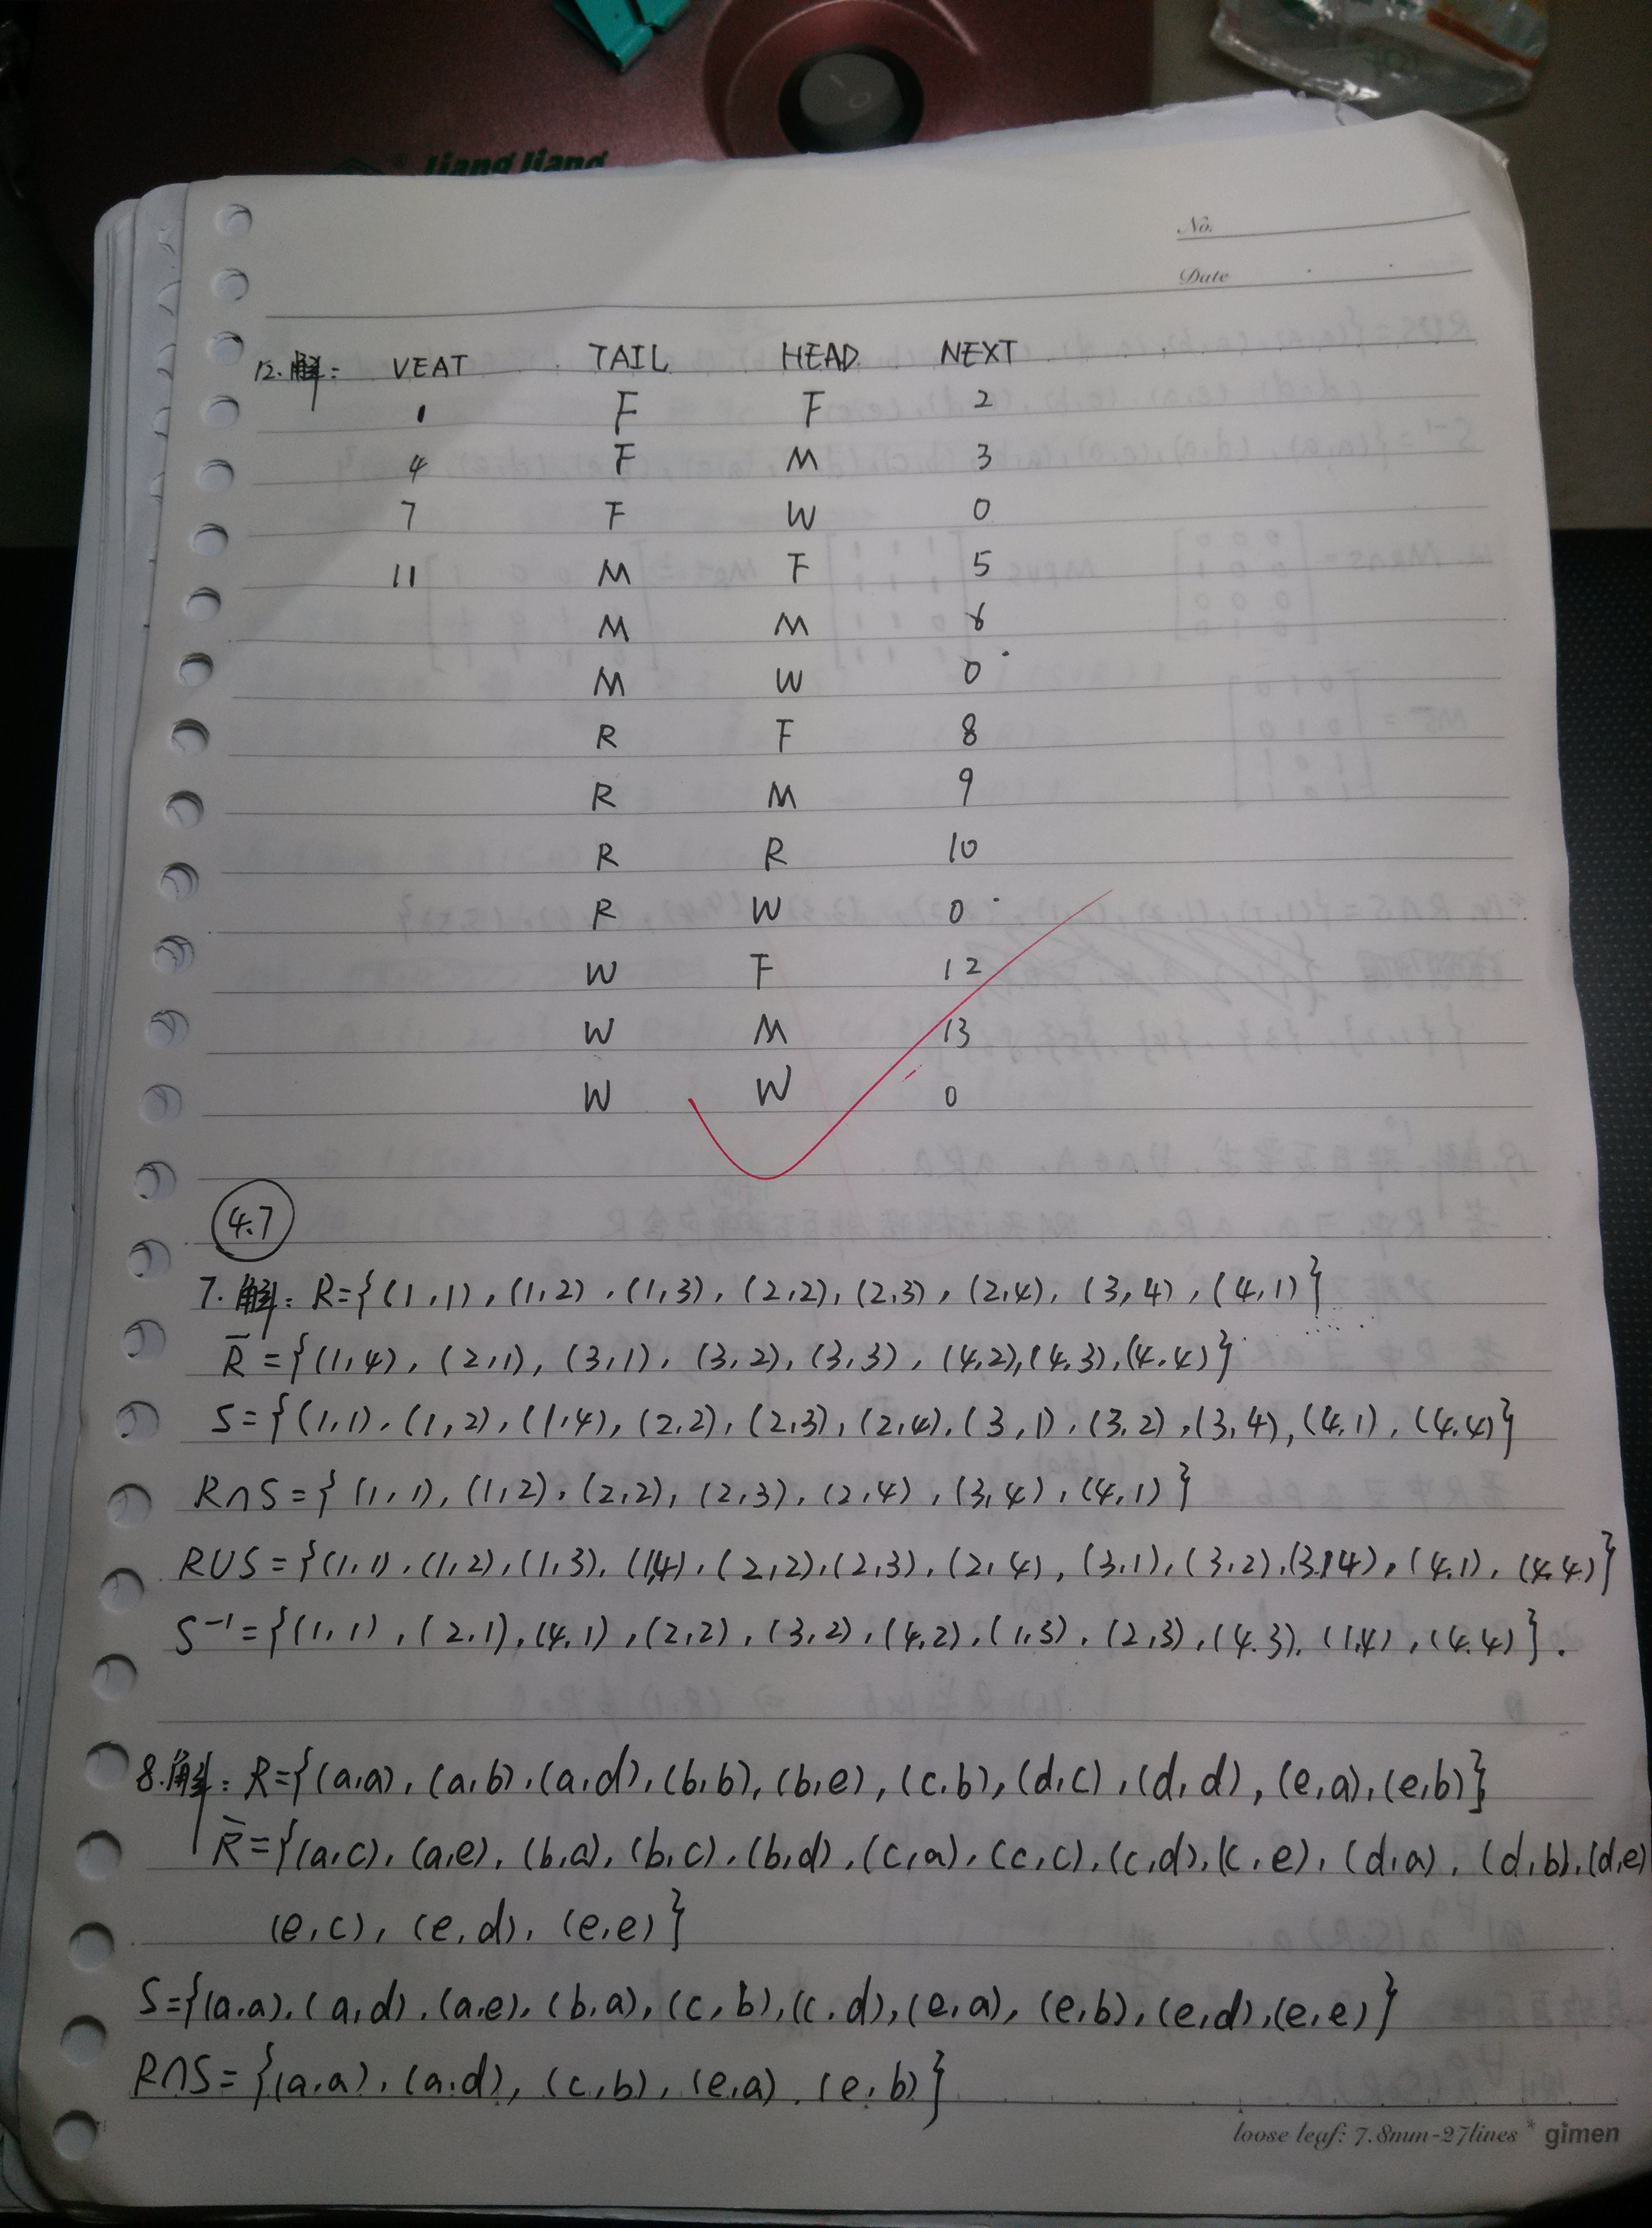 liang liang
No.
Date
12.解: VEAT TAIL HEAD NEXT
1 F F 2
4 F M 3
7 F W 0
11 M F 5
M M 6
M W 0
R F 8
R M 9
R R 10
R W 0
W F 12
W M 13
W W 0
4.7
7.解: R={(1,1),(1,2),(1,3),(2,2),(2,3),(2,4),(3,4),(4,1)}
R̄={(1,4),(2,1),(3,1),(3,2),(3,3),(4,2),(4,3),(4,4)}
S={(1,1),(1,2),(1,4),(2,2),(2,3),(2,4),(3,1),(3,2),(3,4),(4,1),(4,4)}
R∩S={(1,1),(1,2),(2,2),(2,3),(2,4),(3,4),(4,1)}
R∪S={(1,1),(1,2),(1,3),(1,4),(2,2),(2,3),(2,4),(3,1),(3,2),(3,4),(4,1),(4,4)}
S⁻¹={(1,1),(2,1),(4,1),(2,2),(3,2),(4,2),(1,3),(2,3),(4,3),(1,4),(4,4)}.
8.解: R={(a,a),(a,b),(a,d),(b,b),(b,e),(c,b),(d,c),(d,d),(e,a),(e,b)}
R̄={(a,c),(a,e),(b,a),(b,c),(b,d),(c,a),(c,c),(c,d),(c,e),(d,a),(d,b),(d,e)
(e,c),(e,d),(e,e)}
S={(a,a),(a,d),(a,e),(b,a),(c,b),(c,d),(e,a),(e,b),(e,d),(e,e)}
R∩S={(a,a),(a,d),(c,b),(e,a),(e,b)}
loose leaf: 7.8mm-27lines * gimen